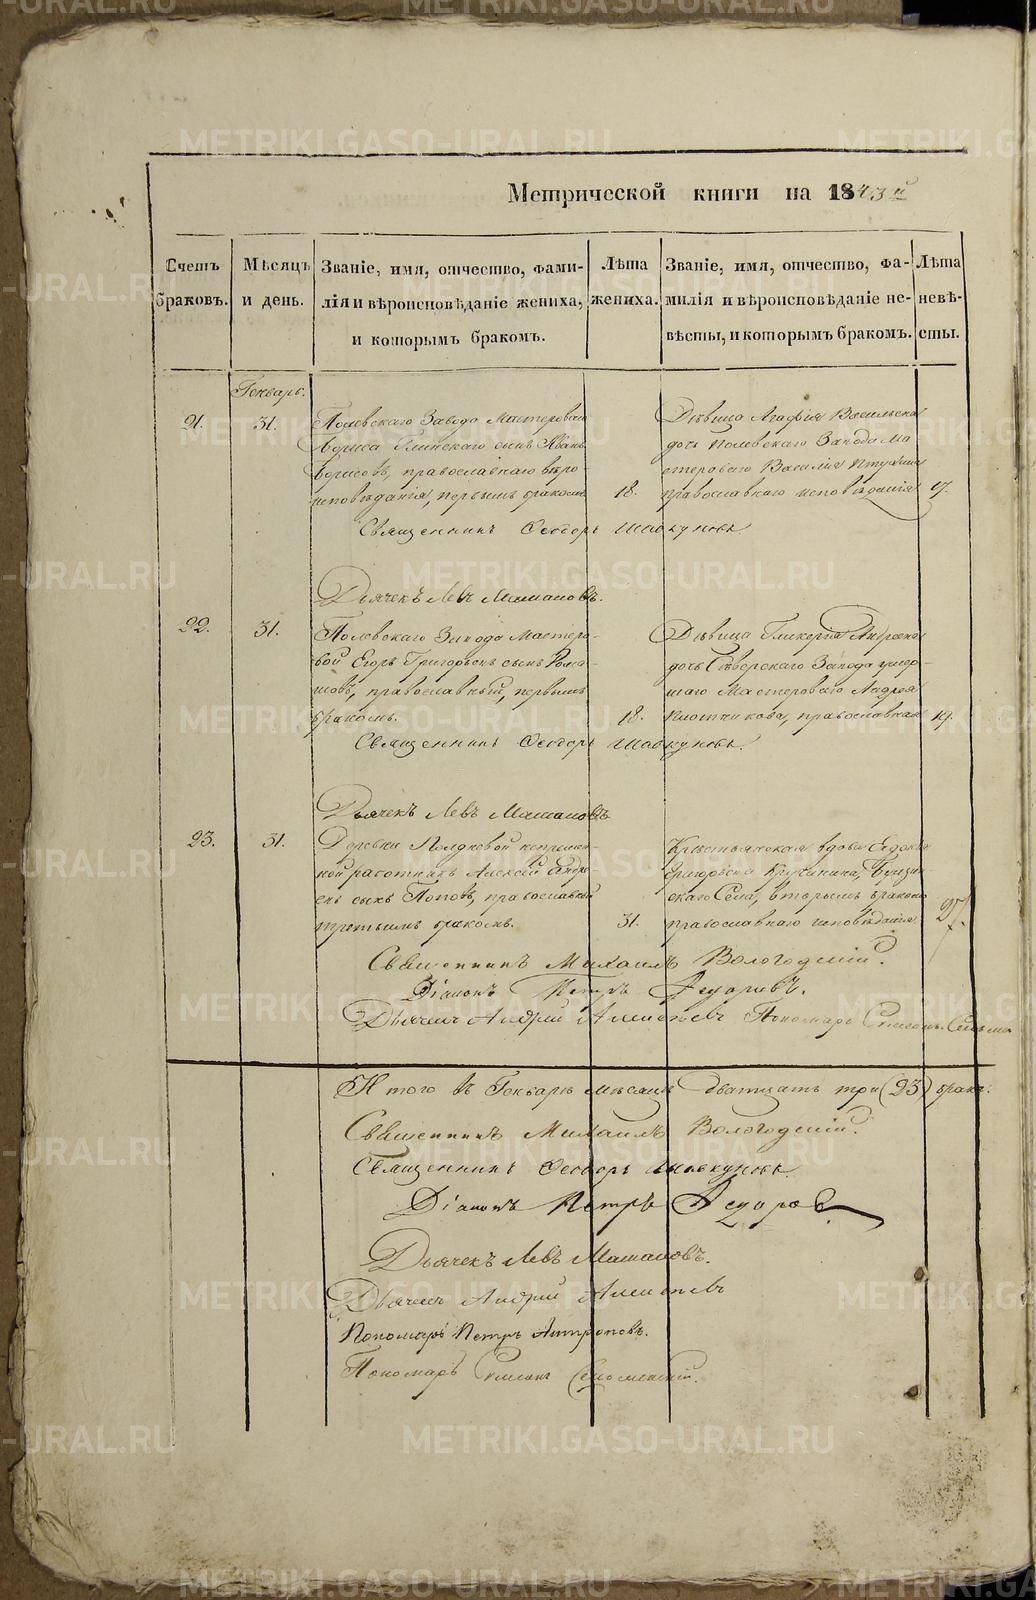 Метрической книги на 1843й
Счетъ браковъ.
Мѣсяцъ и день.
Званіе, имя, отчество, фами-
лія и вѣроисповѣданіе жениха,
и которымъ бракомъ.
Лѣта жениха.
Званіе, имя, отчество, фа-
милія и вѣроисповѣданіе не-
вѣсты, и которымъ бракомъ.
Лѣта невѣ-
сты.
Генварь.
21. 31.
Полевскаго Завода Мастероваго
Бориса сынъ Иванъ
Борисовъ, православнаго вѣро-
исповѣданія, первымъ бракомъ
18.
Дѣвица Агафія Васильева
дочь Полевскаго Завода Ма-
стероваго Василія
православнаго исповѣданія
17.
Священникъ Феодоръ Шавкуновъ
Дьячекъ Левъ Машановъ.
22. 31.
Полевскаго Завода Мастеро-
вой Егоръ Григорьевъ сынъ Рома-
шовъ, православный, первымъ
бракомъ.
18.
Дѣвица Гликерія Андреева
дочь Сѣверскаго Завода умер-
шаго Мастероваго Андрея
Плотникова, православная
19.
Священникъ Феодоръ Шавкуновъ.
Дьячекъ Левъ Машановъ
23. 31.
Деревни Полдневой непремен-
ной работникъ Алексей Андре-
евъ сынъ Поповъ, православный
третьимъ бракомъ.
31.
Крестьянская вдова
Григорьева
Села, вторымъ бракомъ
православнаго исповѣданія
27.
Священникъ Михаилъ Вологодскій.
Діаконъ Петръ Федоровъ.
Дьячекъ Андрей Алексѣевъ Пономарь
Итого въ Генварѣ мѣсяцѣ двадцать три (23) брака.
Священникъ Михаилъ Вологодскій.
Священникъ Феодоръ Шавкуновъ.
Діаконъ Петръ Федоровъ
Дьячекъ Левъ Машановъ.
Дьячекъ Андрей Алексѣевъ
Пономарь Петръ Антроповъ.
Пономарь
METRIKI.GASO-URAL.RU